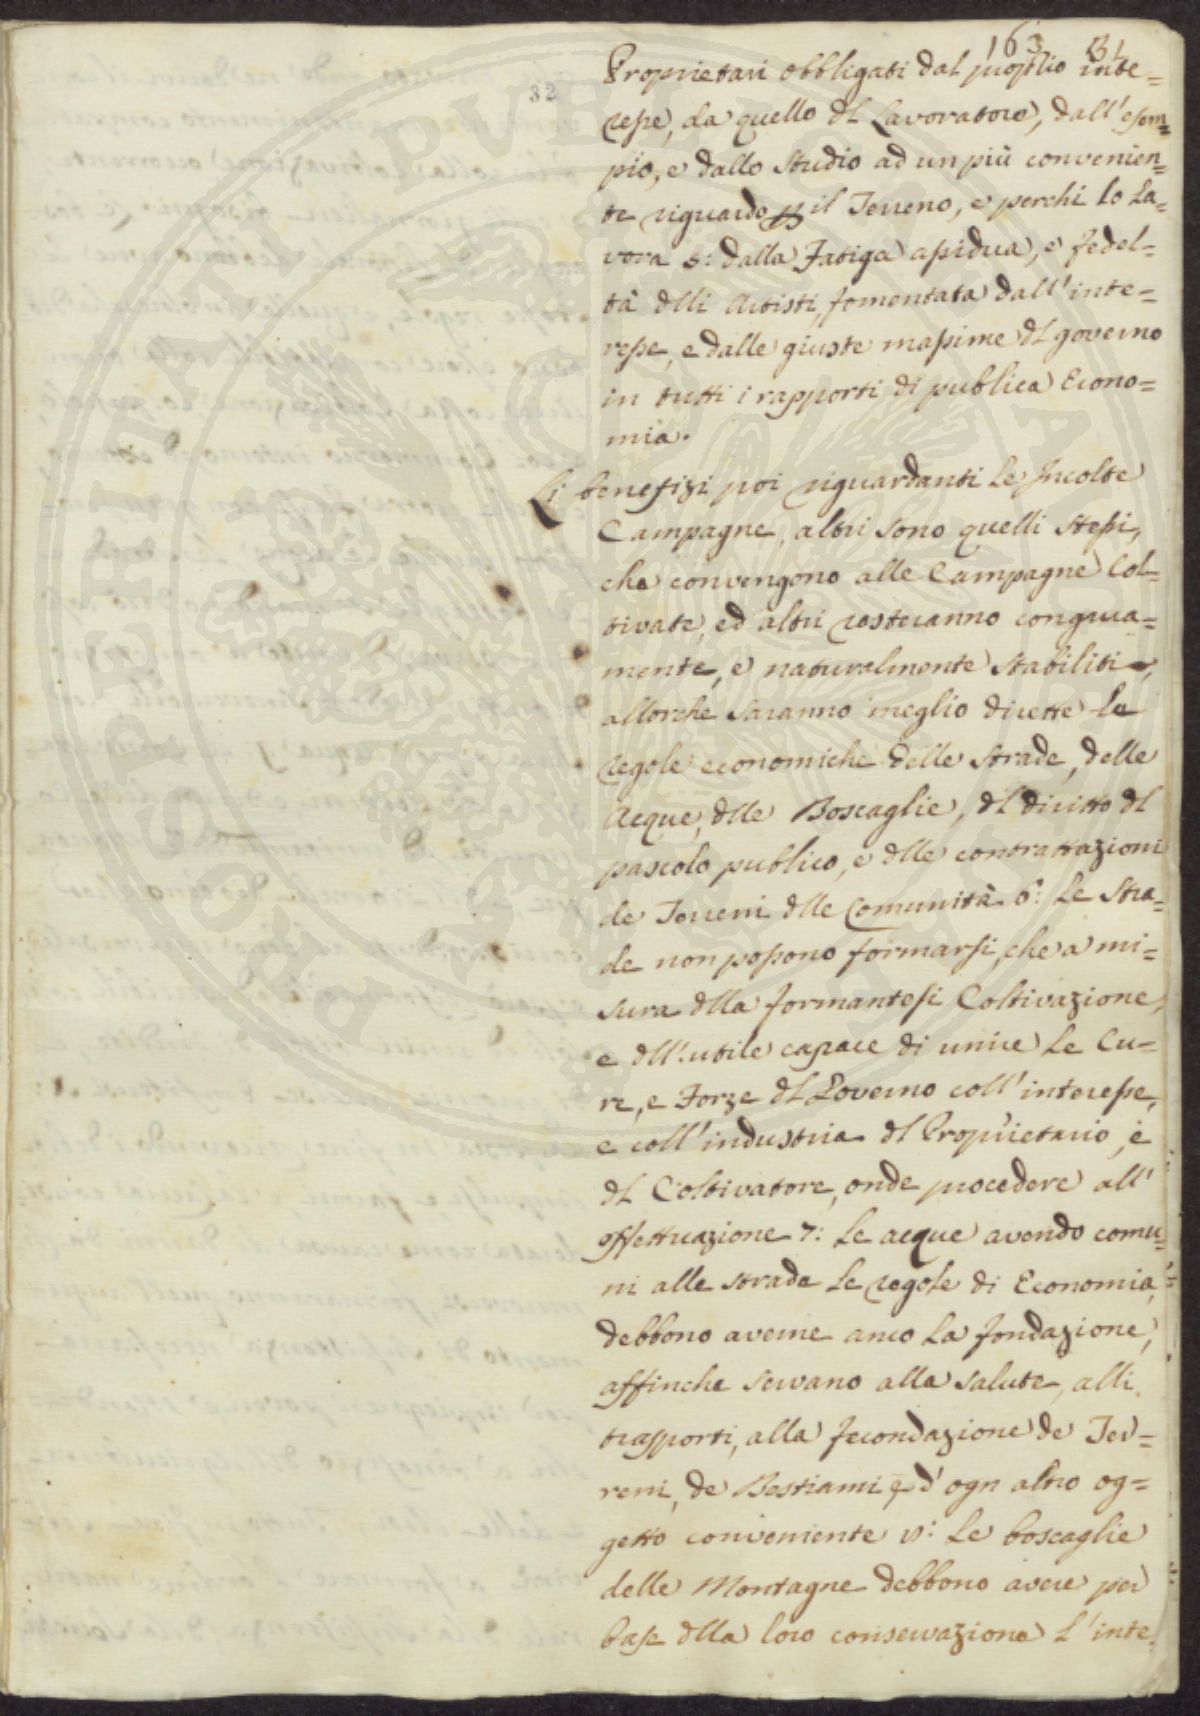 163 31
32
Proprietari obbligati dal proprio inte=
resse, da quello dl Lavoratore, dall'esem=
pio, e dallo Studio ad un più convenien=
te riguardo p il Terreno, e perchi lo la=
vora 5: dalla Fatiga assidua, e fedel=
tà dlli Artisti, fomentata dall'inte=
resse, e dalle giuste massime dl governo
in tutti i rapporti di publica Econo=
mia.
Li benefizi poi riguardanti le Incolte
Campagne, altri sono quelli stessi,
che convengono alle Campagne Col=
tivate, ed altri resteranno congrua=
mente, e naturalmente stabiliti,
allorche saranno meglio dirette le
regole economiche delle strade, delle
Acque, dlle Boscaglie, dl diritto dl
pascolo publico, e dlle contrattazioni
de Terreni dlle Comunità 6: Le Stra=
de non possono formarsi, che a mi=
sura dlla formantesi Coltivazione,
e dll'utile capace di unire le Cu=
re, e Forze dl Governo coll'interesse,
e coll'industria dl Proprietario, e
dl Coltivatore, onde procedere all'
effettuazione 7: Le acque avendo comu=
ni alle strade le regole di Economia,
debbono averne anco la fondazione,
affinche servano alla salute, alli
trasporti, alla fecondazione de Ter=
reni, de Bestiami, e d'ogn altro og=
getto conveniente 8: Le boscaglie
delle Montagne debbono avere per
base dlla loro conservazione l'inte
PROSPERITATI PVBLICAE